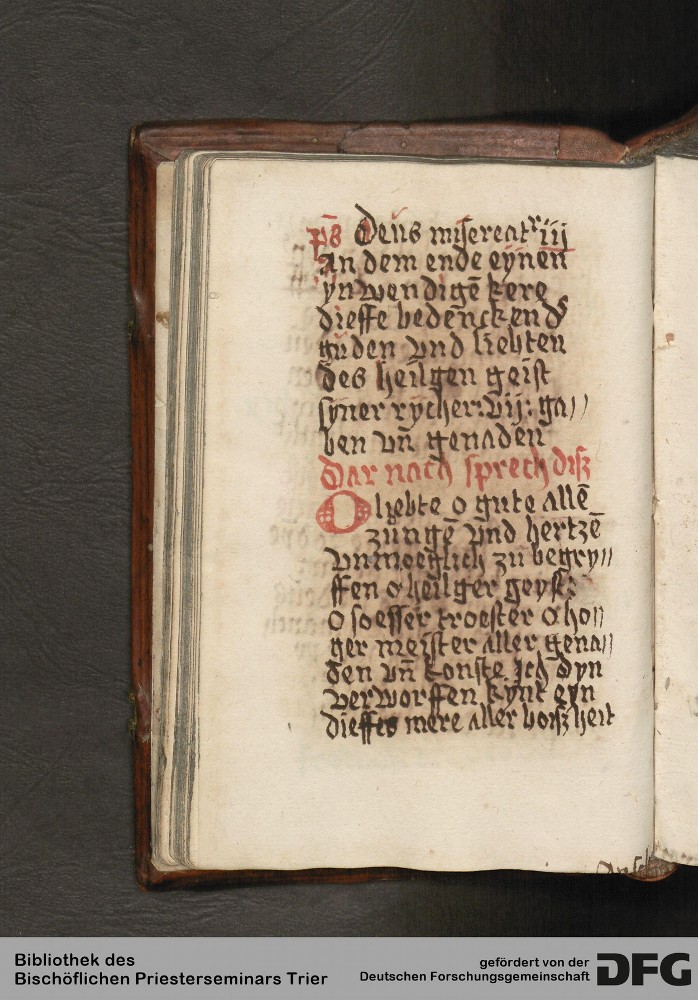 ps Deus misereatr iij
An dem ende eynen
ynwendigē kere
dieffe bedēncken ds
guden vnd liebten
des heilgen geist
syner rycher: vij: ga//
ben vn̄ genaden
Dar nach sprech disz
O liebte o gute allē
zungē vnd hertzē
vnmoeglich zu begry//
ffen o heilger geyst:
O soesser troester o ho//
ger meister aller gena//
den vn̄ konste ich dyn
verworffen kynt eyn
dieffes mere aller boiszheit
Bibliothek des
Bischöflichen Priesterseminars Trier
gefördert von der
Deutschen Forschungsgemeinschaft
DFG